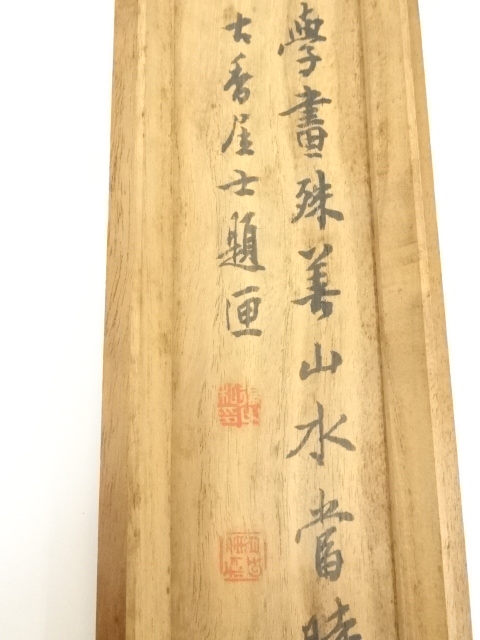 學畫殊善山水當時
古香居士題匣